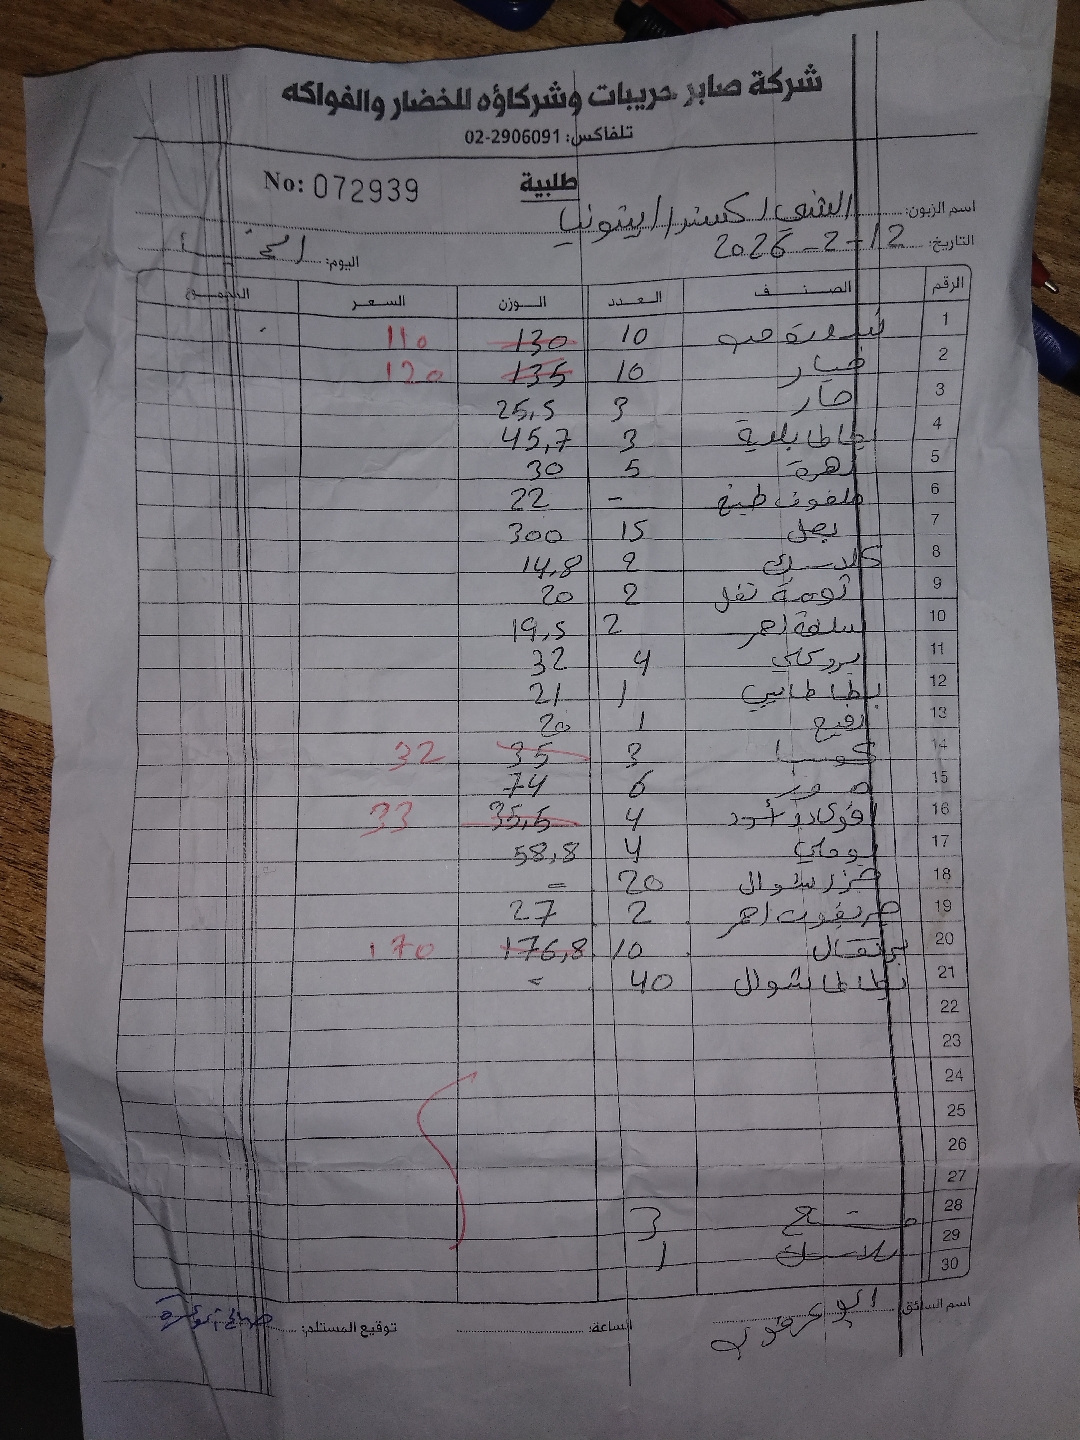 شركة صابر حريبات وشركاؤه للخضار والفواكه
تلفاكس: 02-2906091
No: 072939
طلبية
اسم الزبون: الشني اكسترا / بيتونيا
التاريخ: 12-2-2026 اليوم:
الرقم الصنف العدد الوزن السعر المجموع
1 بندورة حبه 10 130 110
2 خيار 10 135 120
3 حار 3 25,5
4 بطاطا بلدية 3 45,7
5 زهرة 5 30
6 ملفوف طبيخ - 22
7 بصل 15 300
8 2 14,8
9 ثومة تفل 2 20
10 احمر 2 19,5
11 بروكلي 4 32
12 بطاطا 1 21
13 1 20
14 كوسا 3 35 32
15 6 74
16 افوكادو 4 35,5 33
17 بوملي 4 58,8
18 جزر شوال 20 =
19 جريفوت احمر 2 27
20 برتقال 10 176,8 170
21 بطاطا شوال 40 -
22
23
24
25
26
27
28 3
29 1
30
اسم السائق: ابو عرقوب الساعة: توقيع المستلم: